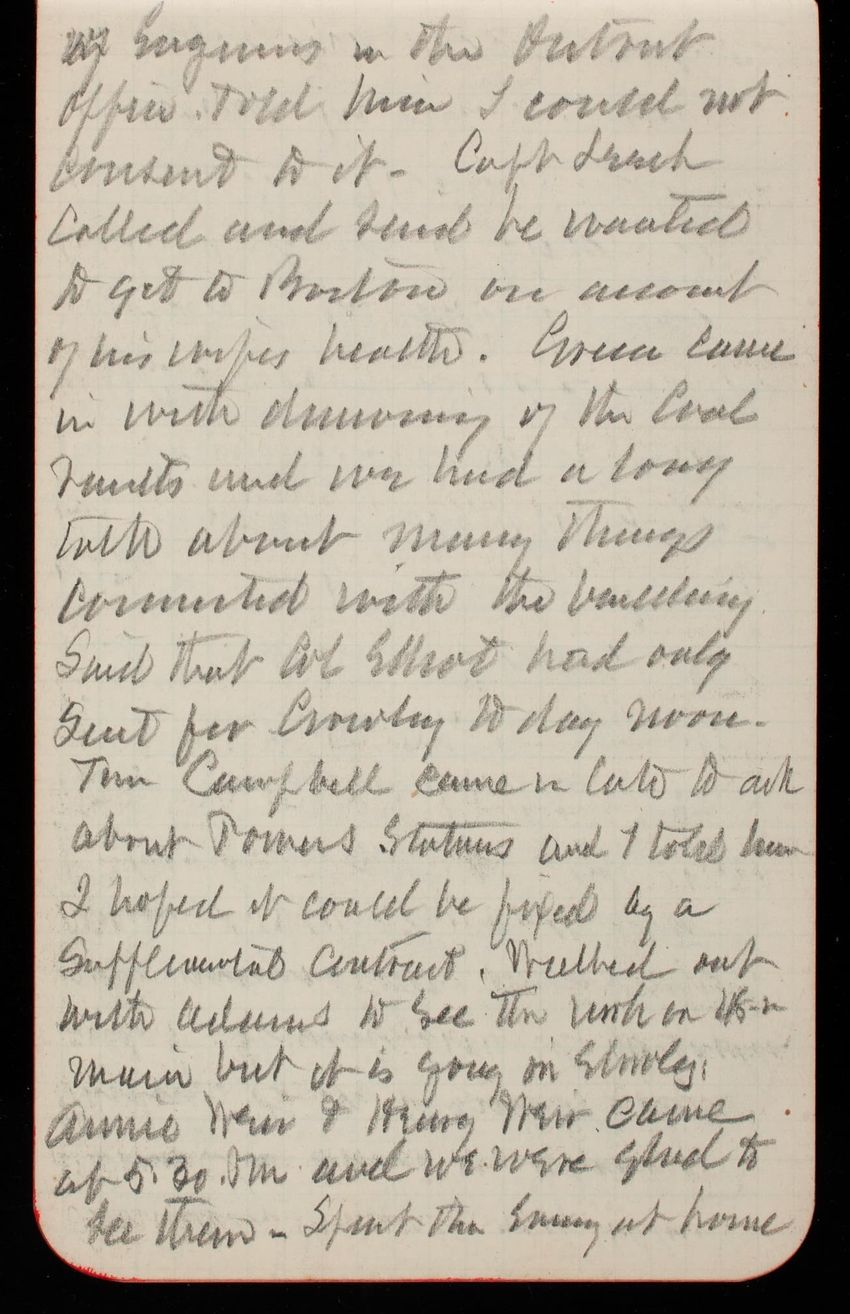 of Engineers in the District
office. Told him I could not
consent to it - Capt
Called and said he wanted
to get to Boston on account
of his wifes health. Green came
in with drawing of the Coal
Vaults and we had a long
talk about many things
connected with the building
Said that Col Elliot had only
Sent for Crowley to day noon -
Tom Campbell came in late to ask
about Powers Status and I told him
I hoped it could be fixed by a
Supplemental Contract. Walked out
with Adams to see the work on 48 in
main but it is going on Slowly.
Annie Weir & Henry Weir came
at 5.30 PM and we were glad to
see them - Spent the Evening at home